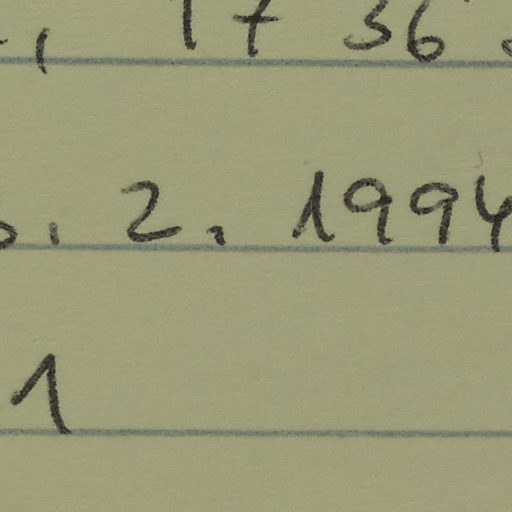 , 1736
. 2. 1994
1